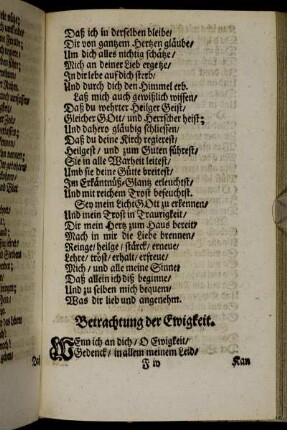 Daß ich in derselben bleibe/
Dir von gantzem Hertzen gläube/
Um dich alles nichtig schätze/
Mich an deiner Lieb ergetze/
In dir lebe auf dich sterb/
Und durch dich den Himmel erb.
Laß mich auch gewißlich wissen/
Daß du wehrter Heilger Geist/
Gleicher GOtt/ und Herrscher heist;
Und dahero gläubig schliessen/
Daß du deine Kirch regierest/
Heilgest/ und zum Guten führest/
Sie in alle Warheit leitest/
Umb sie deine Gütte breitest/
Im Erkäntnüß-Glantz erleuchtst/
Und mit reichem Trost befeuchtst.
Sey mein Licht GOtt zu erkennen/
Und mein Trost in Traurigkeit/
Dir mein Hertz zum Haus bereit/
Mach in mir die Liebe brennen/
Reinge/ heilge/ stärck/ erneue/
Lehre/ tröst/ erhalt/ erfreue/
Mich/ und alle meine Sinne/
Daß allein ich diß beginne/
Und zu selben mich bequem/
Was dir lieb und angenehm.
Betrachtung der Ewigkeit.
WEnn ich an dich/ O Ewigkeit/
Gedenck/ in allem meinem Leid/
F iv
Kan